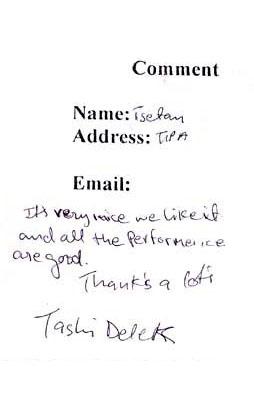 Comment
Name: Tsetan
Address: TIPA
Email:
It's very nice we like it
and all the performence
are good.
Thank's a lot's
Tashi Delek